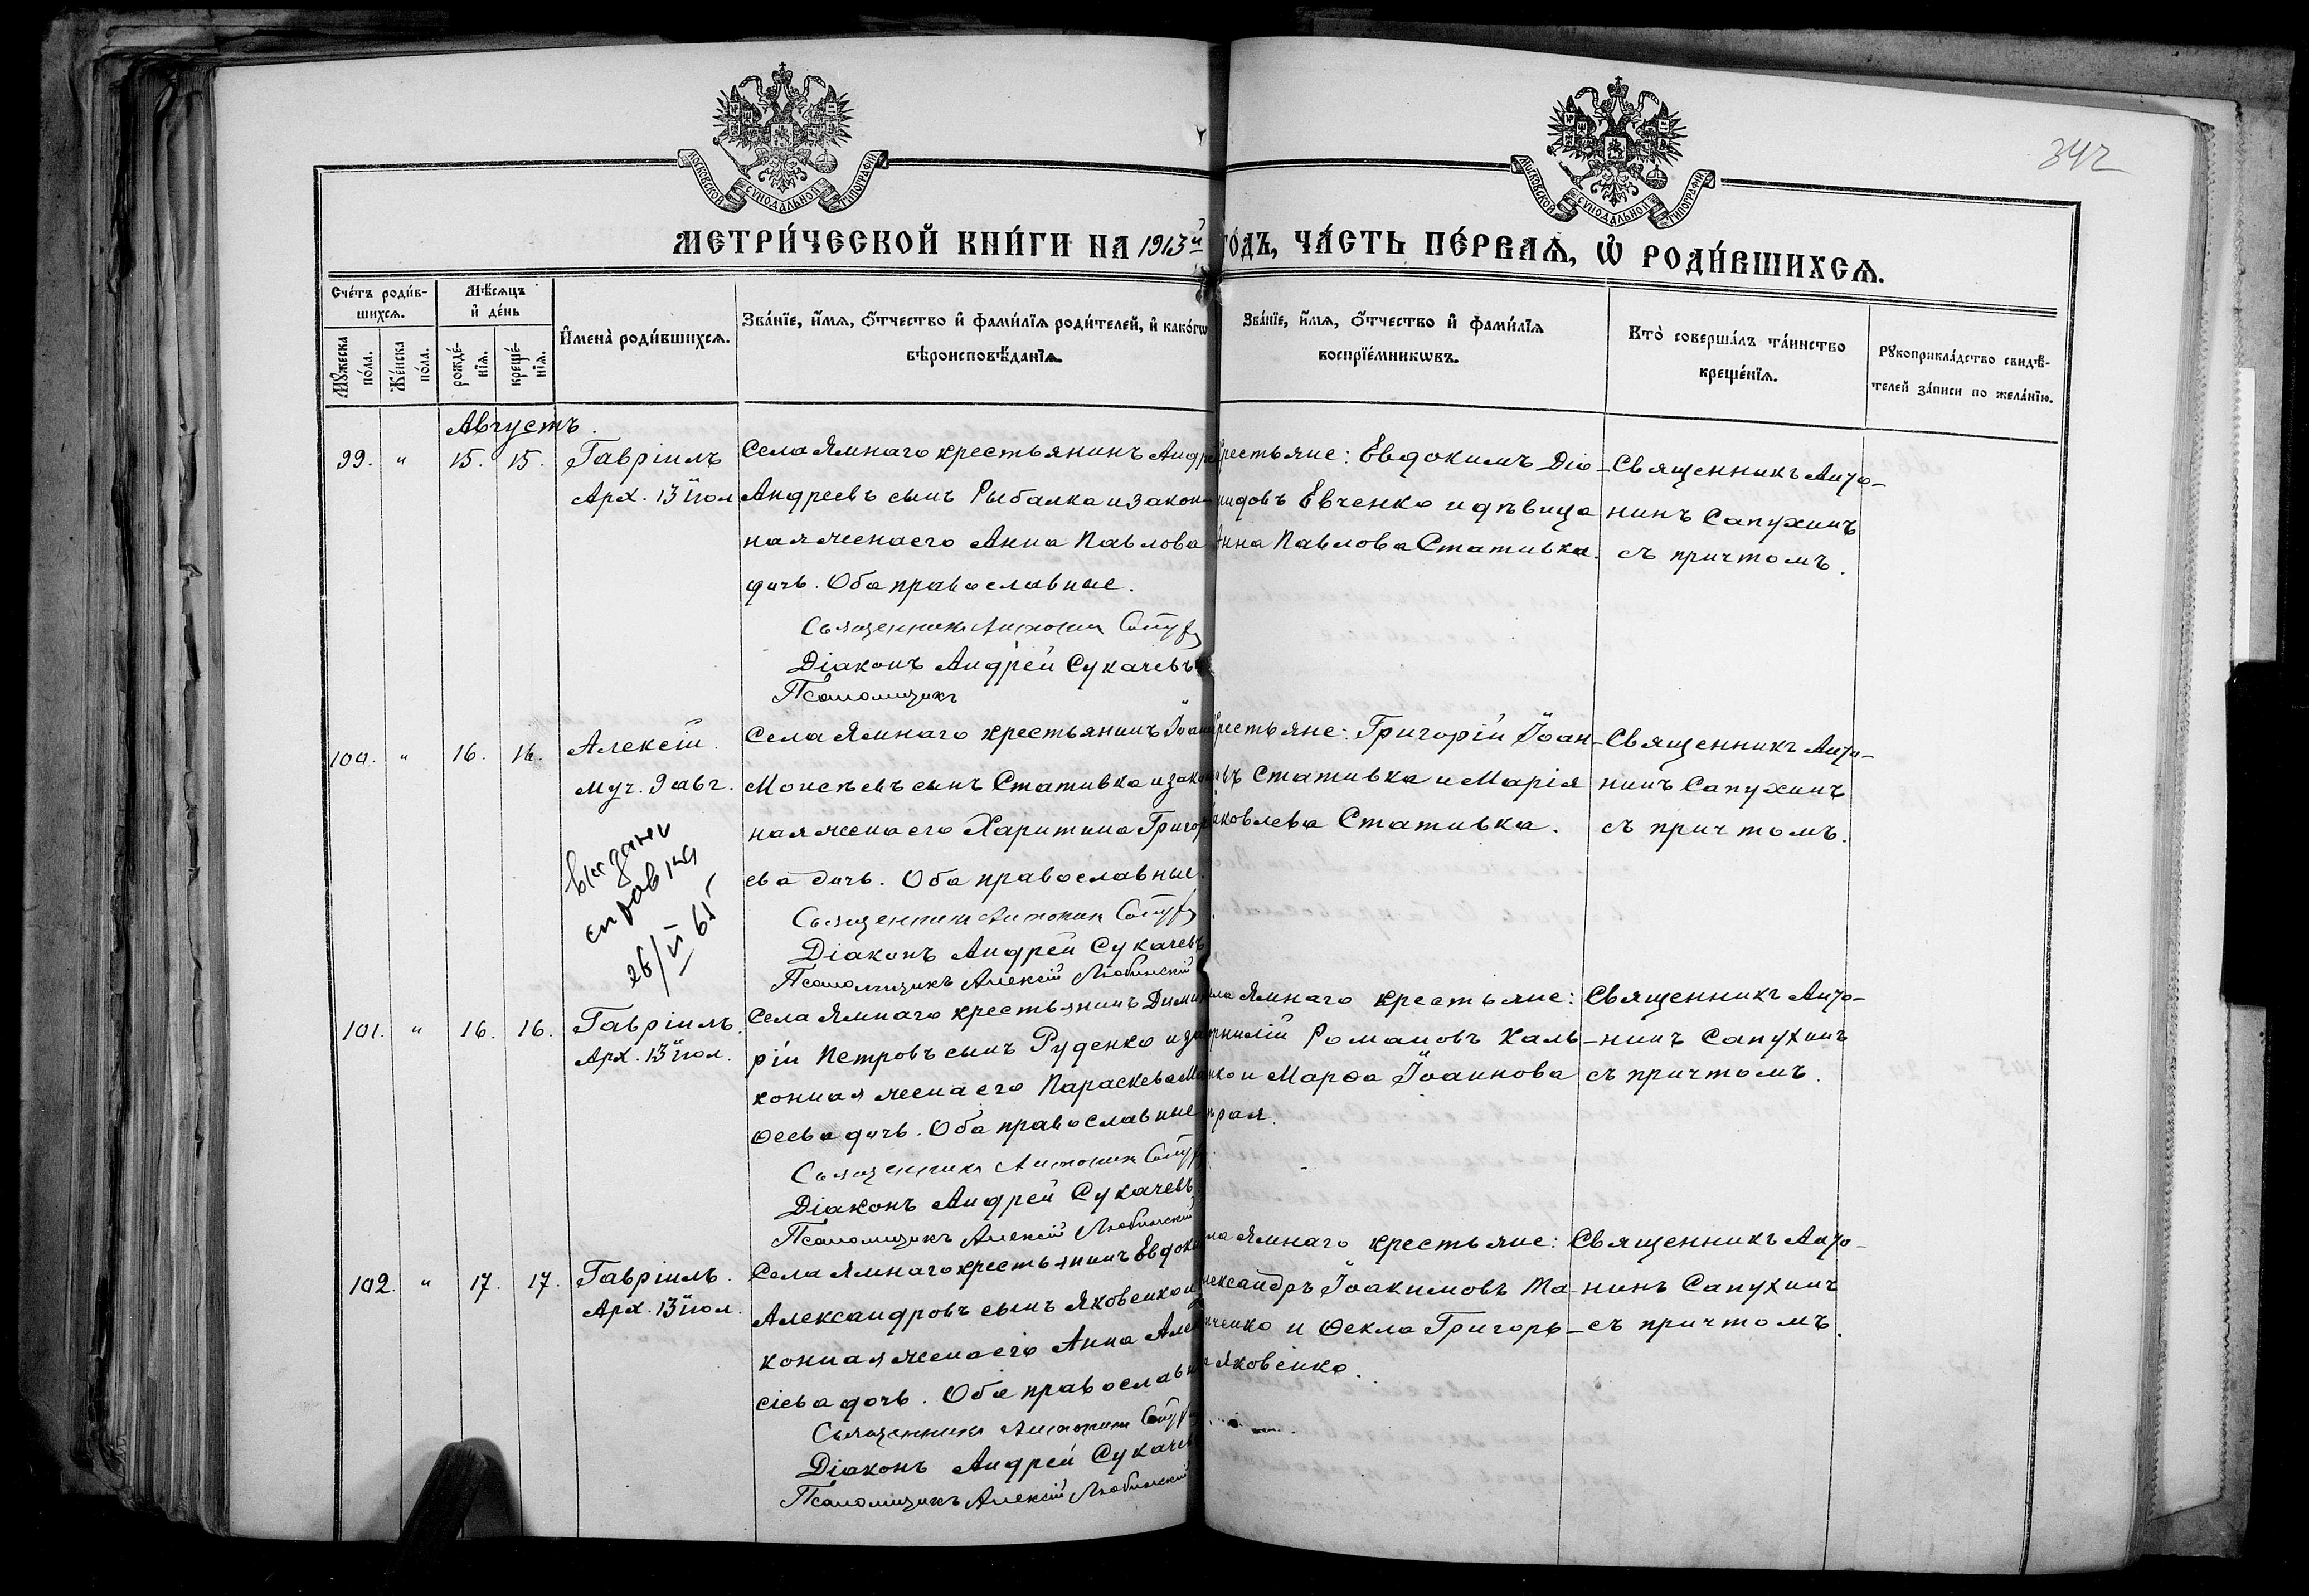 342
МОСКОВСКОЙ СУНОДАЛЬНОЙ ТИПОГРАФІИ
МОСКОВСКОЙ СУНОДАЛЬНОЙ ТИПОГРАФІИ
МЕТРИ́ЧЕСКОЙ КНИ́ГИ НА 1913й го́дъ, ЧА́СТЬ ПЕ́РВАѦ, Ѡ҆ РОДИ́ВШИХСѦ.
Сче́тъ роди́в-
шихсѧ.
Мꙋ́жеска по́ла.
Же́нска по́ла.
Мѣ́сѧцъ
и҆ де́нь
рожде́-
нїѧ.
креще́-
нїѧ.
И҆мена̀ роди́вшихсѧ.
Зва́нїе, и҆́мѧ, ѻ҆́тчество и҆ фами́лїѧ роди́телей, и҆ како́гѡ
вѣроисповѣ́данїѧ.
Зва́нїе, и҆́мѧ, ѻ҆́тчество и҆ фами́лїѧ
воспрїе́мникѡвъ.
Кто̀ соверша́лъ та́инство
креще́нїѧ.
Рꙋкоприкла́дство свидѣ́-
телей за́писи по жела́нїю.
Августъ.
99. " 15. 15. Гавріилъ
Арх. 13 іюл
Села Ямнаго крестьянинъ Андре
Андреевъ сынъ Рыбалка и закон-
ная жена его Анна Павлова
дочь. Оба православные.
Священникъ Антонин
Діаконъ Андрей Сукачевъ
Псаломщикъ
крестьяне: Евдокимъ Діо-
нидовъ Евченко и дѣвица
Анна Павлова Стативка.
Священникъ Анто-
нинъ Сапухинъ
съ причтомъ.
100. " 16. 16. Алексій
муч. 9 авг.
выдана
справка
26/VI 65
Села Ямнаго крестьянинъ Іоанн
Моисѣевъ сынъ Стативка и закон
ная жена его Харитина Григорь
ева дочь. Оба православные.
Священникъ Антонин
Діаконъ Андрей Сукачевъ
Псаломщикъ Алексій Любинскій
крестьяне: Григорій Іоан-
овъ Стативка и Марія
Яковлева Стативка.
Священникъ Анто-
нинъ Сапухинъ
съ причтомъ.
101. " 16. 16. Гавріилъ.
Арх. 13 іюл.
Села Ямнаго крестьянинъ Дими
рій Петровъ сынъ Руденко и за
конная жена его Параскева Мат
ѳеева дочь. Оба православные
Священникъ Антонин
Діаконъ Андрей Сукачевъ
Псаломщикъ Алексій Любинскій
ела Ямнаго крестьяне:
рнилій Романовъ Каль-
нко и Марѳа Іоаннова
Священникъ Анто-
нинъ Сапухинъ
съ причтомъ.
102. " 17. 17. Гавріилъ.
Арх. 13 іюл.
Села Ямнаго крестьянинъ Евдоки
Александровъ сынъ Яковенко и
конная жена его Анна Алек
сіева дочь. Оба православн
Священникъ Антонин
Діаконъ Андрей Сукачев
Псаломщикъ Алексій Любинскій
ла Ямнаго крестьяне:
лександръ Іоакимовъ Ма-
нченко и Ѳекла Григорь-
Яковенко.
Священникъ Анто-
нинъ Сапухинъ
съ причтомъ.